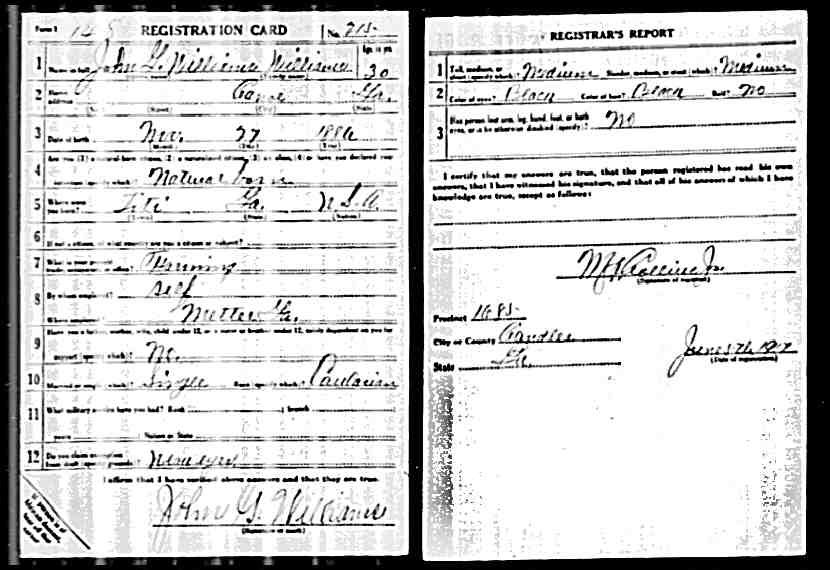 Form 1 REGISTRATION CARD No. 215
1 Name in full John G. Williams Williams Age, in yrs. 30
(Family name)
2 Home address Canoe Ga.
(No.) (Street) (City) (State)
3 Date of birth Nov. 27 1886
(Month) (Day) (Year)
4 Are you (1) a natural-born citizen, (2) a naturalized citizen, (3) an alien, (4) or have you declared your
intention (specify which)? Natural born
5 Where were you born? Ga. U.S.A.
(Town) (State) (Nation)
6 If not a citizen, of what country are you a citizen or subject?
7 What is your present trade, occupation, or office? Farming
8 By whom employed? self
Where employed? Metter Ga.
9 Have you a father, mother, wife, child under 12, or a sister or brother under 12, solely dependent on you for
support (specify which)? No.
10 Married or single (which)? Single Race (specify which)? Caucasian
11 What military service have you had? Rank ; branch
years ; Nation or State
12 Do you claim exemption from draft (specify grounds)?
I affirm that I have verified above answers and that they are true.
John G. Williams
(Signature or mark)
REGISTRAR'S REPORT
1 Tall, medium, or short (specify which)? Medium Slender, medium, or stout (which)? Medium
2 Color of eyes? Black Color of hair? Black Bald? No
3 Has person lost arm, leg, hand, foot, or both
eyes, or is he otherwise disabled (specify)? No
I certify that my answers are true, that the person registered has read his own
answers, that I have witnessed his signature, and that all of his answers of which I have
knowledge are true, except as follows:
(Signature of registrar)
Precinct 1685
City or County Candler
State Ga. June 5th 1917
(Date of registration)